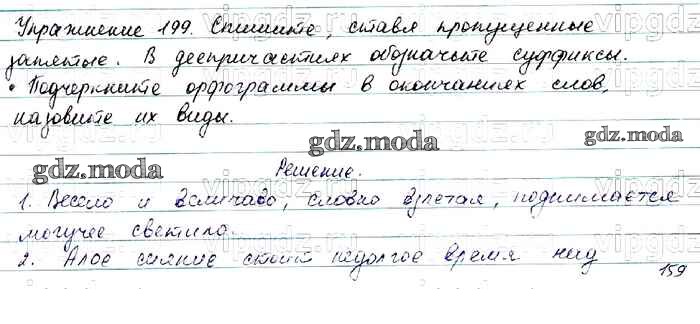 Упражнение 199. Спишите, ставя пропущенные
запятые. В деепричастиях обозначьте суффиксы.
• Подчеркните орфограммы в окончаниях слов,
назовите их виды.
gdz.moda gdz.moda gdz.moda
Решение.
1. Весело и величаво, словно взлетая, поднимается
могучее светило.
2. Алое сияние стоит недолгое время над
159